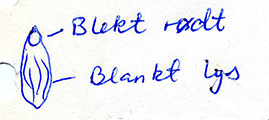 Blekt rødt
Blankt lys